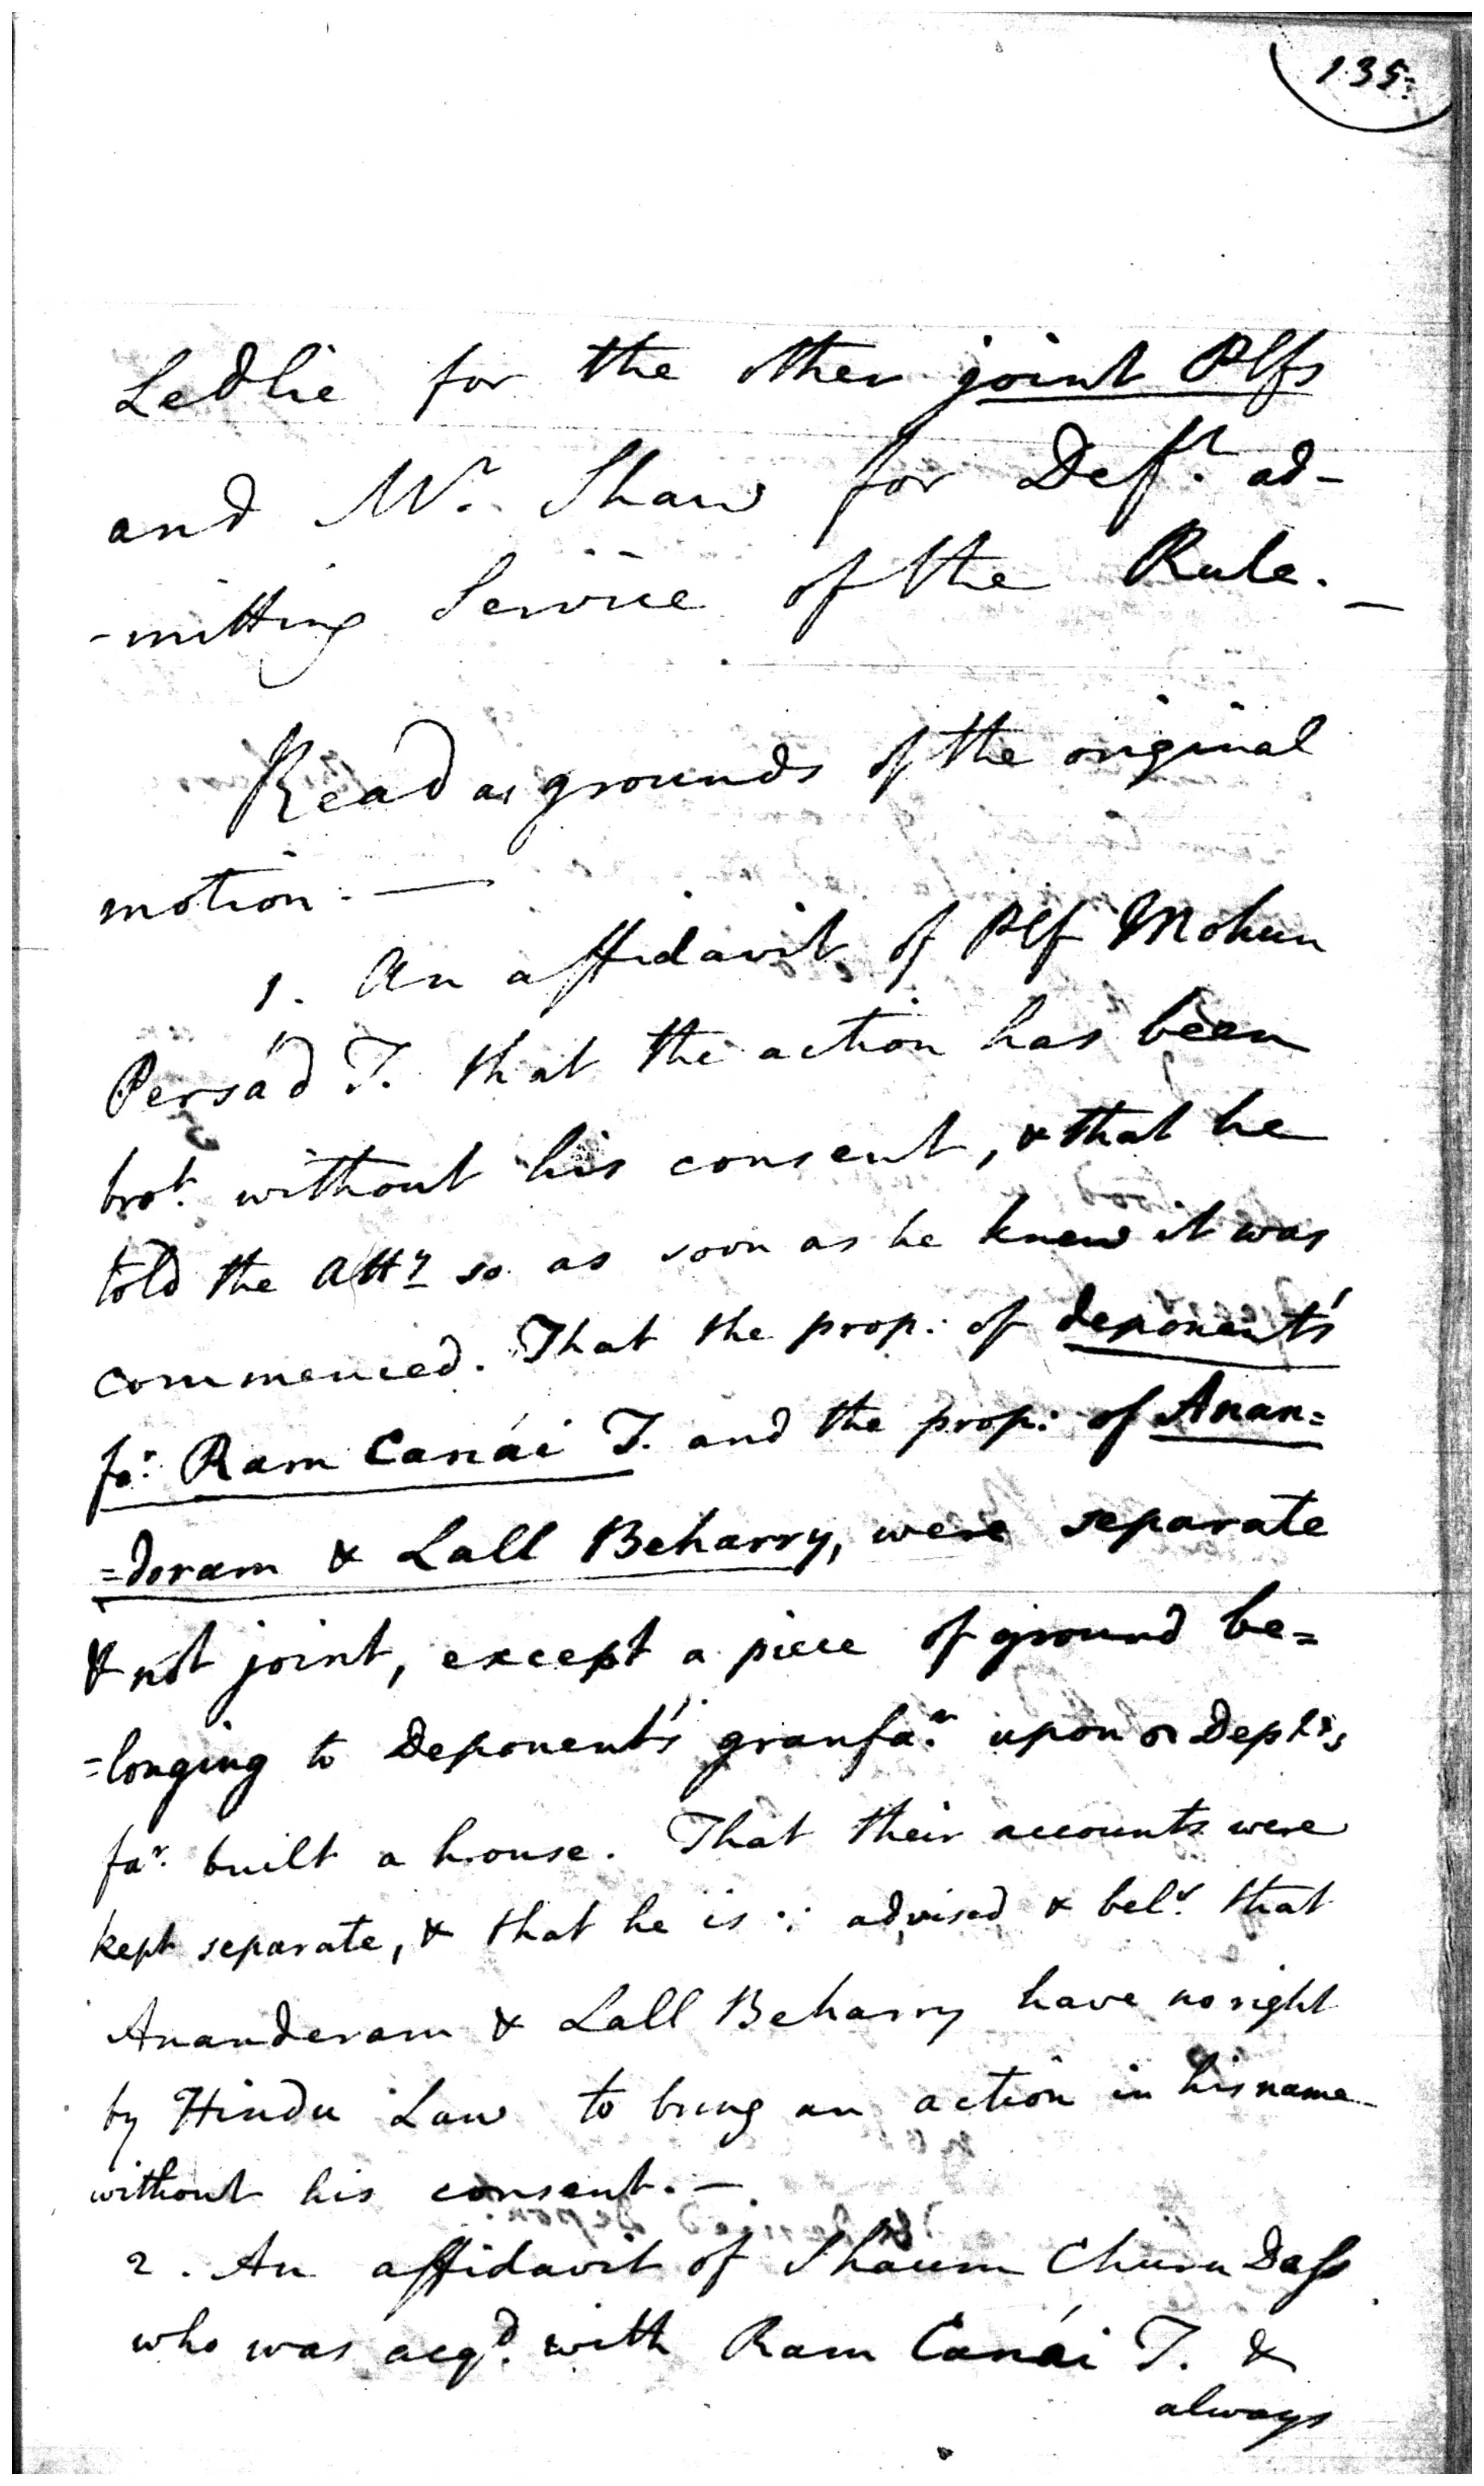 135.
Ledlie for the other joint Plfs
and Mr. Shaw for Deft. ad-
-mitting Service of the Rule. —
Read as grounds of the original
motion. —
1. An affidavit of Plf Mohun
Persád T. that the action has been
brot. without his consent, & that he
told the Atty so as soon as he knew it was
commenced. That the prop: of deponent's
far. Ram Canái T. and the prop: of Anan=
=deram & Lall Beharry, were separate
& not joint, except a piece of ground be=
=longing to Deponent's granfar. upon Dept's
far. built a house. That their accounts were
kept separate, & that he is ∴ advised & belv. that
Ananderam & Lall Beharry have no right
by Hindu Law to bring an action in his name
without his consent. —
2. An affidavit of Shaum Churn Dass
who was acqd. with Ram Canái T. &
always